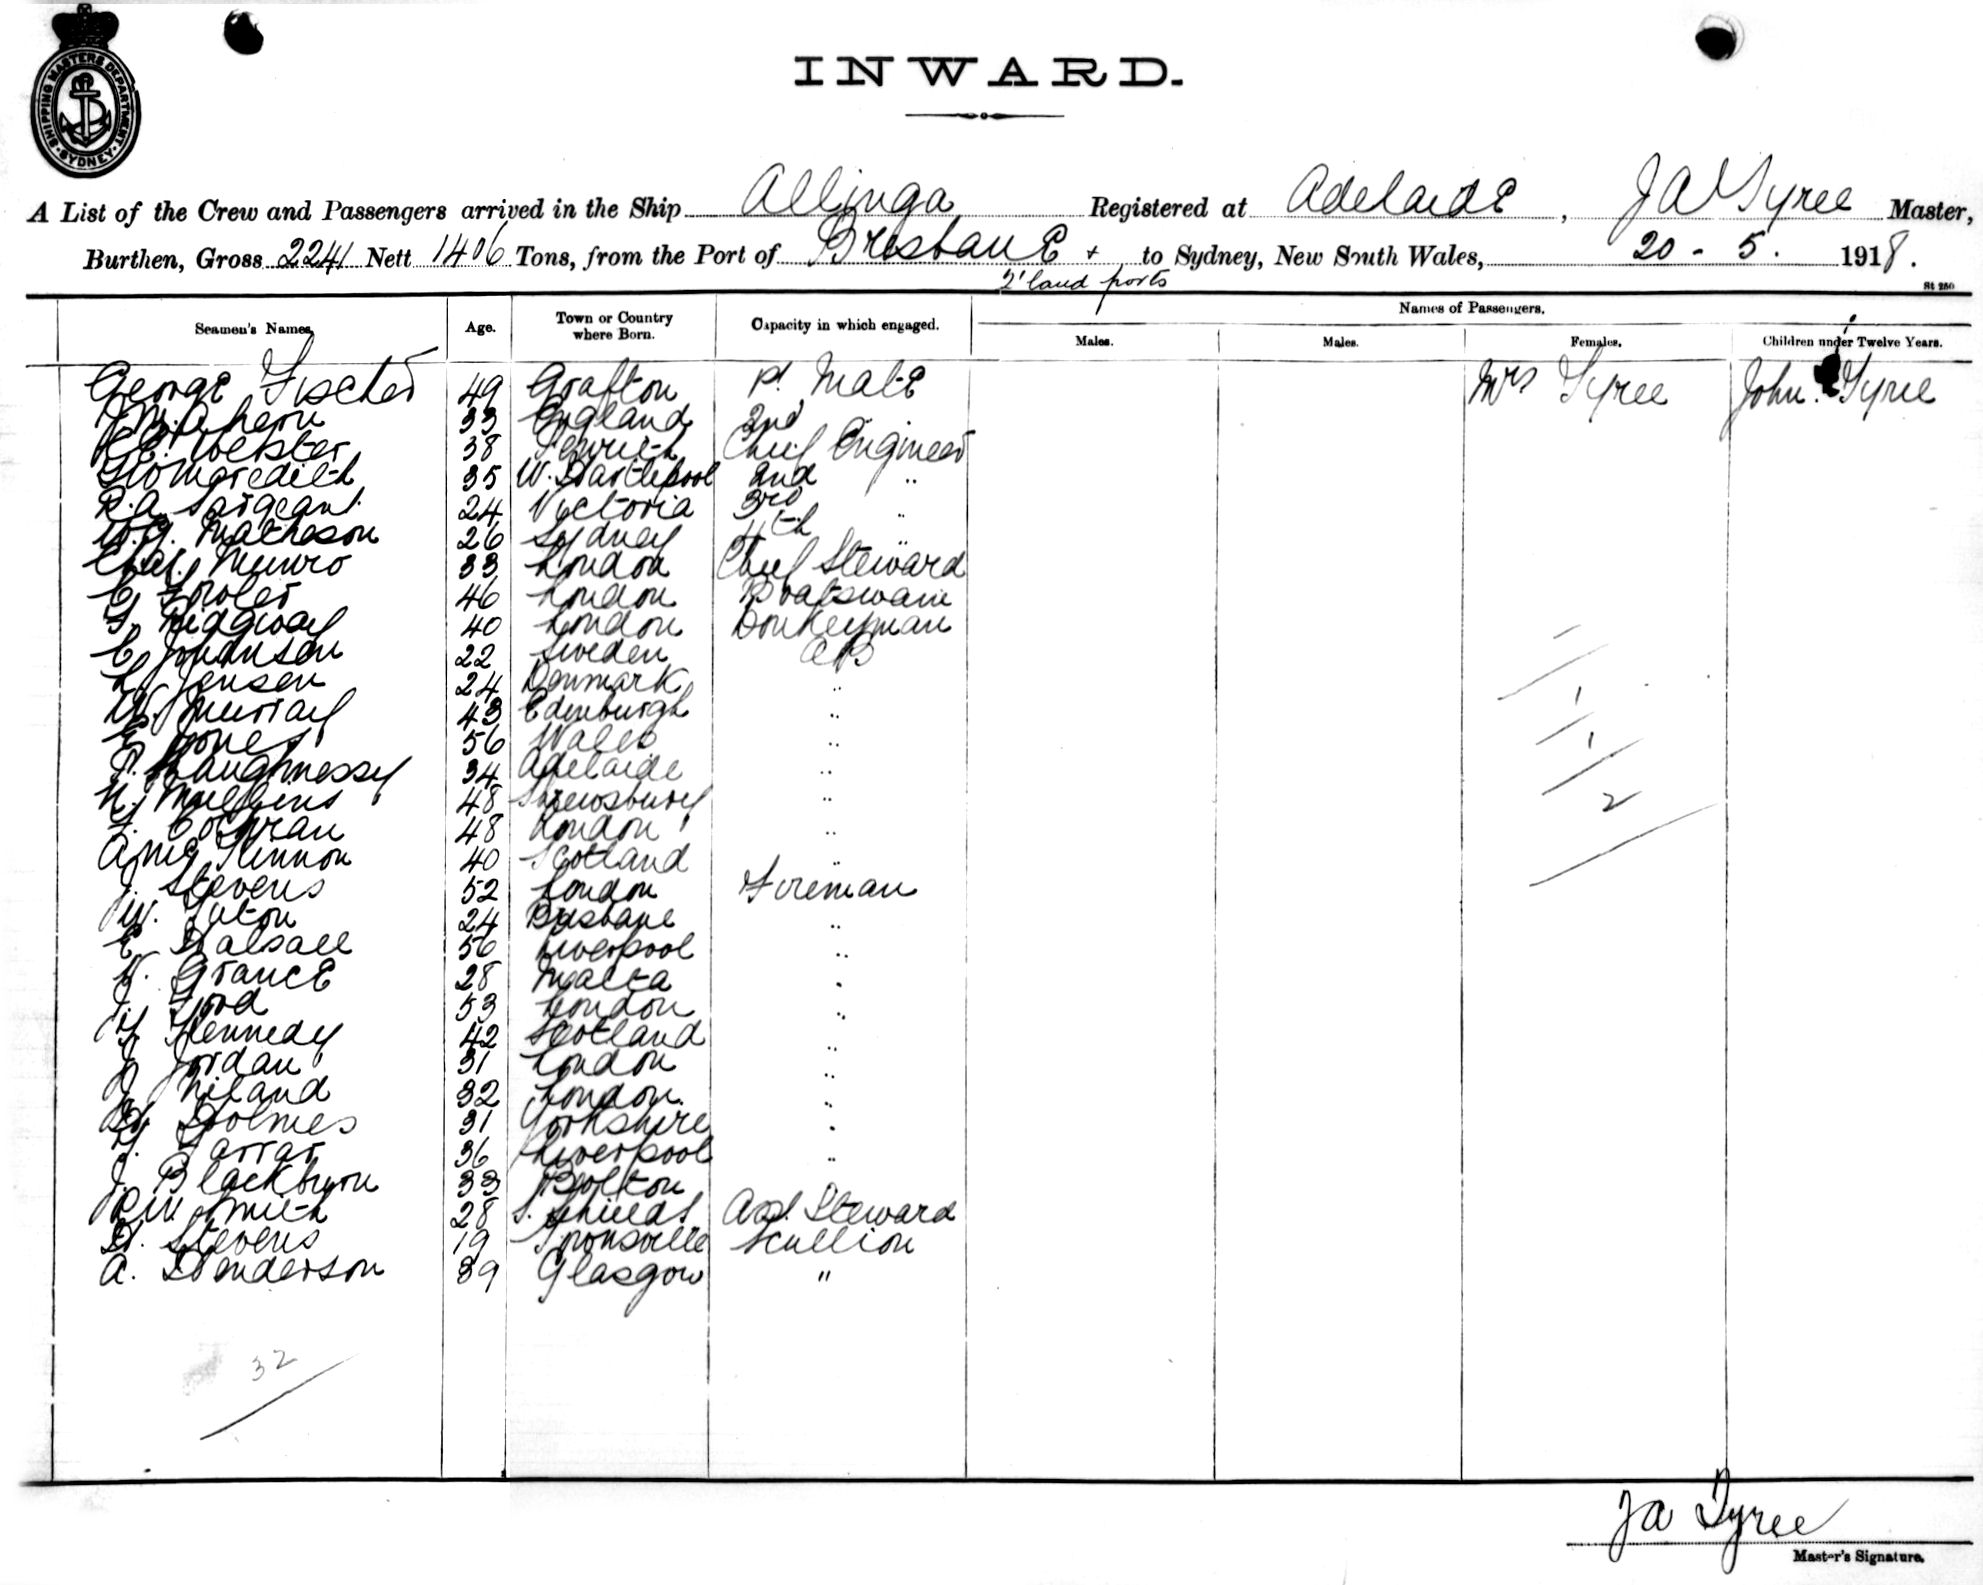 SHIPPING MASTERS DEPARTMENT SYDNEY
INWARD.
A List of the Crew and Passengers arrived in the Ship Allinga Registered at Adelaide, J A Tyree Master,
Burthen, Gross 2241 Nett 1406 Tons, from the Port of Brisbane + to Sydney, New South Wales, 20 - 5. 1918.
2'land ports
St 250
Names of Passengers.
Seamen's Names, Age. Town or Country where Born. Capacity in which engaged. Males. Males. Females. Children under Twelve Years.
George Fischer 49 Grafton Mate Mrs Tyree John Tyree
Ahern 33 England 2nd "
Webster 38 Penrith Chief Engineer
Meredith 35 W. Hartlepool 2nd "
R.A. Sargeant 24 Victoria 3rd "
Matheson 26 Sydney 4th "
Chas. Munro 33 London Chief Steward
C. Fowler 46 London Boatswain
Ridgway 40 London Donkeyman
C. Johansen 22 Sweden AB
L. Jensen 24 Denmark "
W. Murray 43 Edinburgh "
E. Jones 56 Wales "
Shaughnessy 34 Adelaide "
Mullins 48 Shrewsbury "
48 London "
A McKinnon 40 Scotland "
J. Stevens 52 London Fireman
W. 24 Brisbane "
E. Halsall 56 Liverpool "
Grance 28 Malta "
J. Ford 53 London "
Kennedy 42 Scotland "
J. Jordan 31 London "
J. Niland 32 London "
H. Holmes 31 Yorkshire "
Farrar 36 Liverpool "
J. Blackburn 33 Bolton
R.W. Smith 28 S. Shields Asst. Steward
H. Stevens 19 Scullion
A. Henderson 39 Glasgow "
1
1
2
32
JA Tyree
Master's Signature.